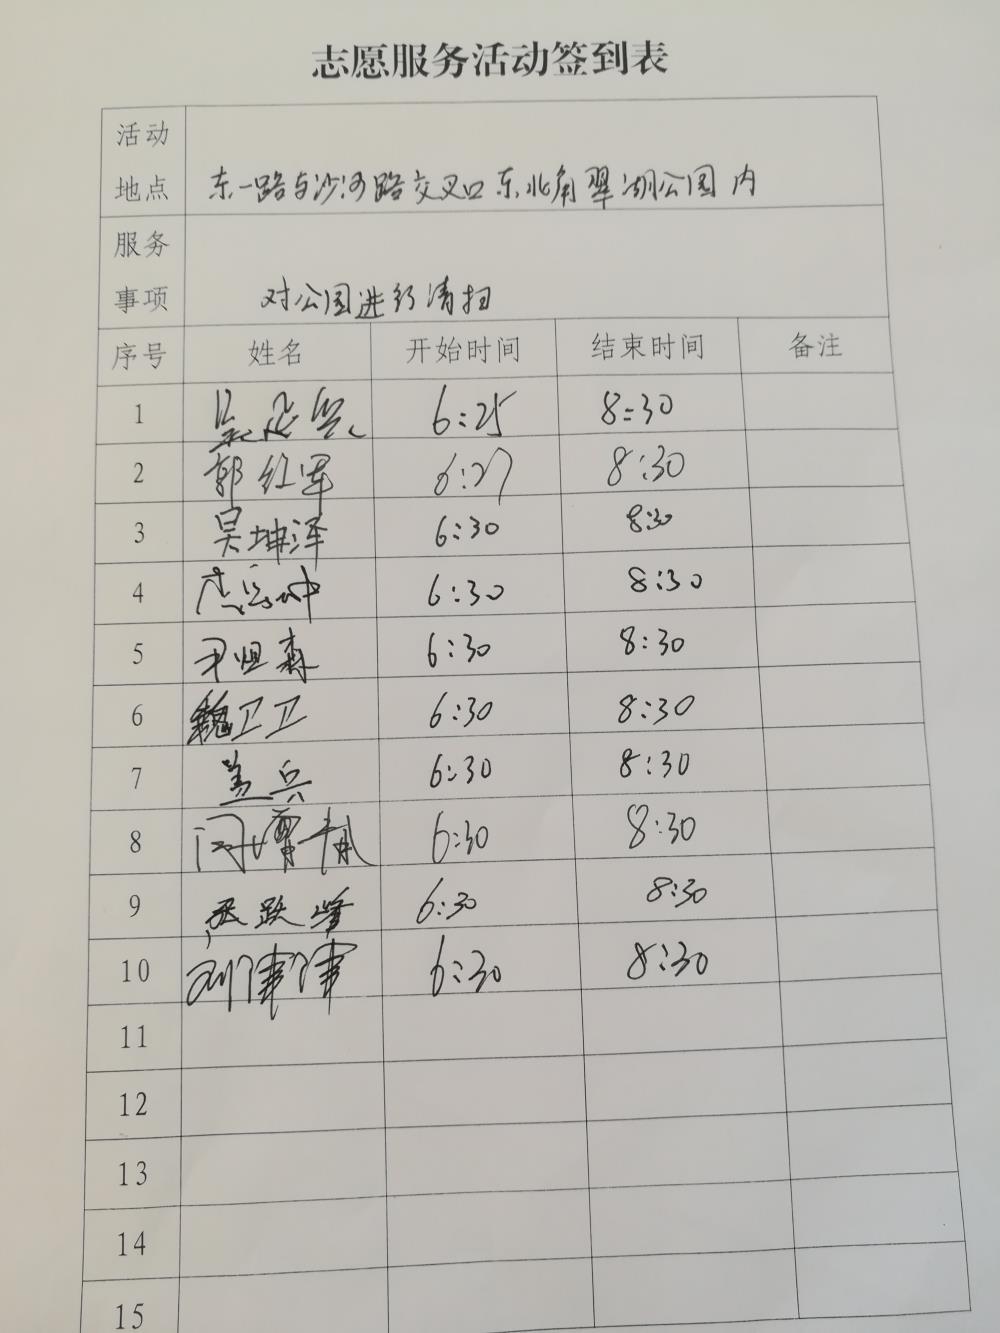 志愿服务活动签到表
活动
地点 东一路与沙河路交叉口东北角翠湖公园内
服务
事项 对公园进行清扫
序号 姓名 开始时间 结束时间 备注
1 6:25 8:30
2 郭红军 6:27 8:30
3 吴坤泽 6:30 8:30
4 6:30 8:30
5 尹恒森 6:30 8:30
6 魏卫卫 6:30 8:30
7 盖兵 6:30 8:30
8 6:30 8:30
9 跃峰 6:30 8:30
10 刘津津 6:30 8:30
11
12
13
14
15